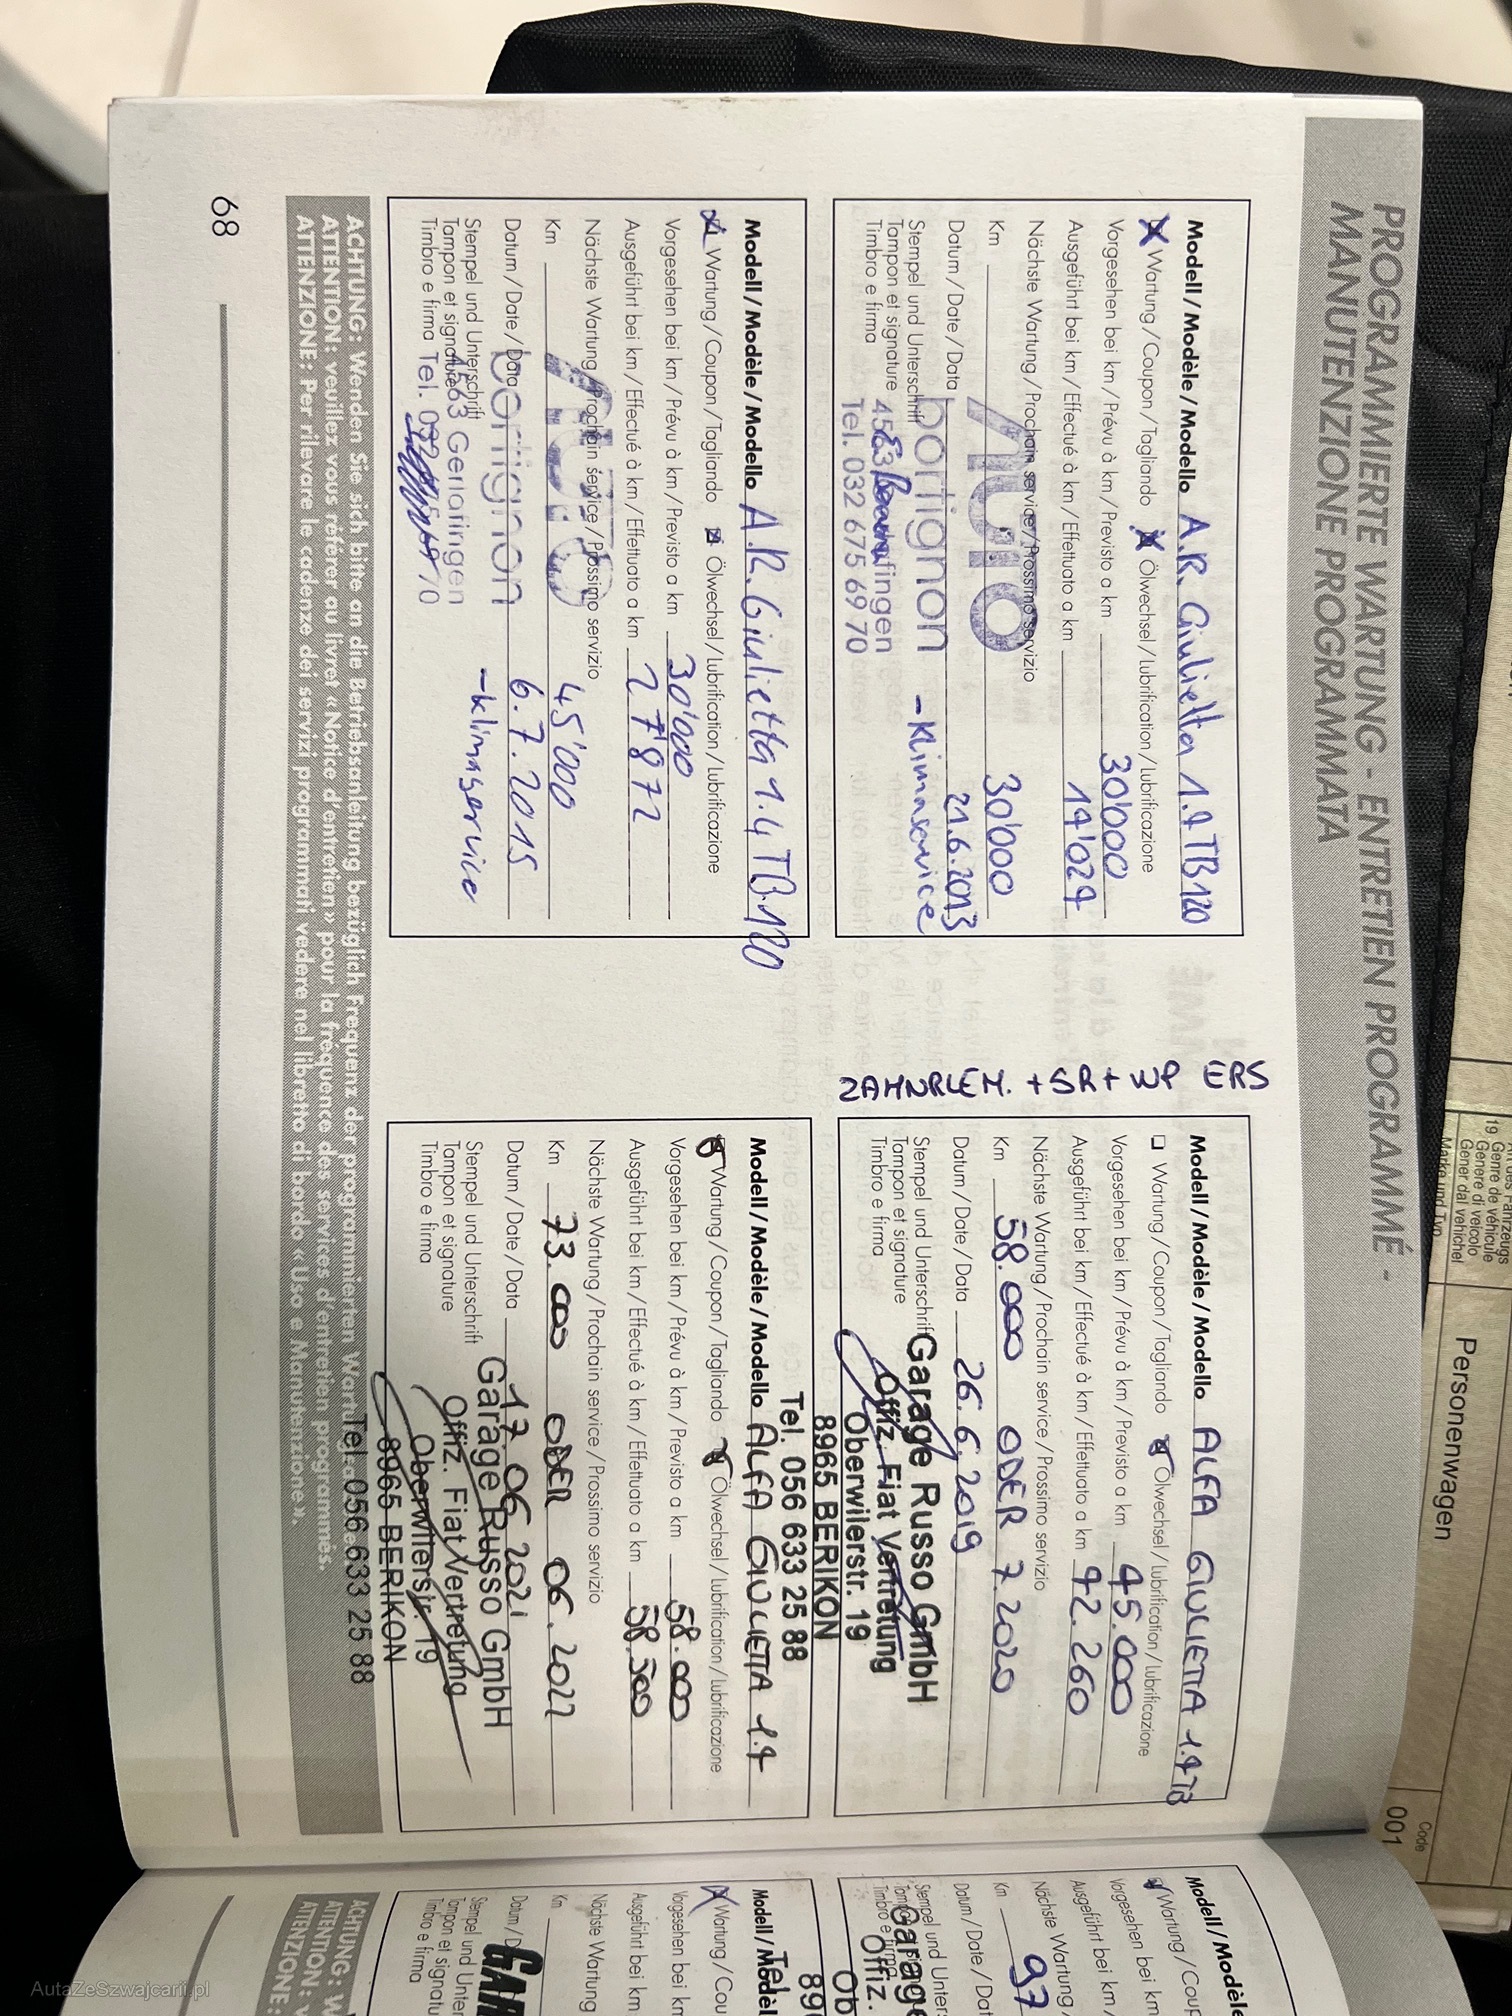 PROGRAMMIERTE WARTUNG - ENTRETIEN PROGRAMMÉ -
MANUTENZIONE PROGRAMMATA
Modell / Modèle / Modello A.R. Giulietta 1.4 TB 120
Wartung / Coupon / Tagliando Ölwechsel / lubrification / lubrificazione
Vorgesehen bei km / Prévu à km / Previsto a km 30'000
Ausgeführt bei km / Effectué à km / Effettuato a km 14'024
Nächste Wartung / Prochain service / Prossimo servizio
Km 30'000
Auto
Datum / Date / Data 21.6.2013
bortignon
Stempel und Unterschrift
Tampon et signature
Timbro e firma
- Klimaservice
4563 Gerlafingen
Tel. 032 675 69 70
Modell / Modèle / Modello A.R. Giulietta 1.4 TB 120
Wartung / Coupon / Tagliando Ölwechsel / lubrification / lubrificazione
Vorgesehen bei km / Prévu à km / Previsto a km 30'000
Ausgeführt bei km / Effectué à km / Effettuato a km 27'872
Nächste Wartung / Prochain service / Prossimo servizio
Km 45'000
Auto
Datum / Date / Data 6.7.2015
bortignon
Stempel und Unterschrift
Tampon et signature
Timbro e firma
- Klimaservice
4563 Gerlafingen
Tel. 032 69 70
ZAHNRIEM. + SR + WP ERS
Modell / Modèle / Modello ALFA GIULIETTA 1.4 TB
Wartung / Coupon / Tagliando Ölwechsel / lubrification / lubrificazione
Vorgesehen bei km / Prévu à km / Previsto a km 45.000
Ausgeführt bei km / Effectué à km / Effettuato a km 42.260
Nächste Wartung / Prochain service / Prossimo servizio
Km 58.000 ODER 7.2020
Datum / Date / Data 26.6.2019
Stempel und Unterschrift
Tampon et signature
Timbro e firma
Garage Russo GmbH
Offiz. Fiat Vertretung
Oberwilerstr. 19
8965 BERIKON
Tel. 056 633 25 88
Modell / Modèle / Modello ALFA GIULIETTA 1.4
Wartung / Coupon / Tagliando Ölwechsel / lubrification / lubrificazione
Vorgesehen bei km / Prévu à km / Previsto a km 58.000
Ausgeführt bei km / Effectué à km / Effettuato a km 58.500
Nächste Wartung / Prochain service / Prossimo servizio
Km 73.000 ODER 06.2022
Datum / Date / Data 17.06.2021
Stempel und Unterschrift
Tampon et signature
Timbro e firma
Garage Russo GmbH
Offiz. Fiat Vertretung
Oberwilerstr. 19
8965 BERIKON
Tel. 056 633 25 88
ACHTUNG: Wenden Sie sich bitte an die Betriebsanleitung bezüglich Frequenz der programmierten
ATTENTION: veuillez vous référer au livret «Notice d'entretien» pour la fréquence des services d'entretien programmés.
ATTENZIONE: Per rilevare le cadenze dei servizi programmati vedere nel libretto di bordo «Uso e Manutenzione».
68
Modell / Modèle
Wartung / Coup
Vorgesehen bei km
Ausgeführt bei km /
Nächste Wartung /
Km 97
Datum / Date / Dat
Stempel und Unters
Timbro e firma
Garage
Offiz.
Ob
896
Tel
Modell / Model
Wartung / Cou
Vorgesehen bei k
Ausgeführt bei km
Nächste Wartung
Km
Datum / D
Stempel und Unter
Tampon et signatu
Timbro e firma
GAR
ACHTUNG: W
ATTENTION: v
ATTENZIONE:
19 Genre de véhicule
Genere di veicolo
Gener dal vehichel
Marke und Typ
Personenwagen
Code
001
AutaZeSzwajcarii.pl